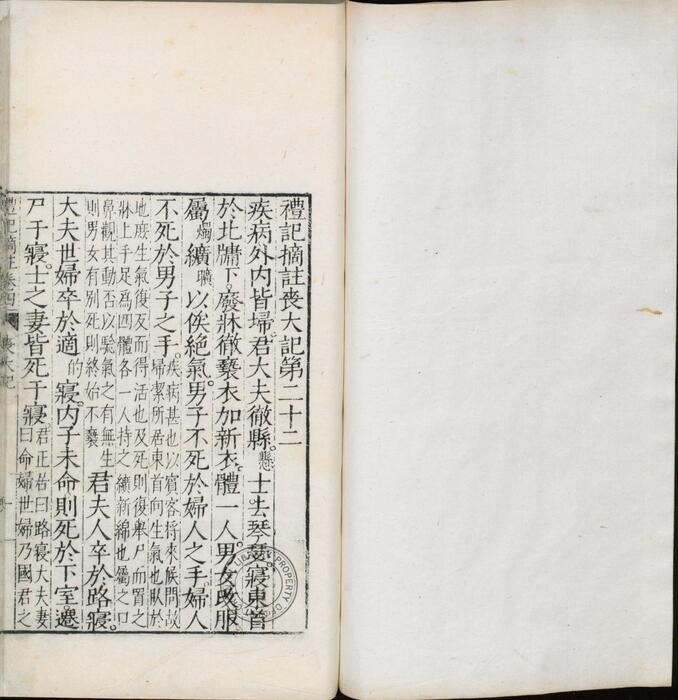 禮記摘註喪大記第二十二
疾病外內皆埽。君大夫徹縣。懸士去琴瑟。寢東首
於北牖下。廢牀徹褻衣加新衣。體一人。男女改服。
屬燭纊曠以俟絕氣。男子不死於婦人之手。婦人
不死於男子之手。疾病甚也以賓客將來候問故
埽潔所居東首向生氣也臥於
地庶生氣復反而得活也及死則復舉尸而置之
牀上手足爲四體各一人持之纊新綿也屬之口
鼻觀其動否以驗氣之有無生
則男女有別死則終始不褻君夫人卒於路寢。
大夫世婦卒於適的寢。內子未命則死於下室。遷
尸于寢。士之妻皆死于寢。君正皆曰路寢大夫妻
曰命婦世婦乃國君之
禮記摘註卷四 喪大記
LIBRARY PROPERTY OF